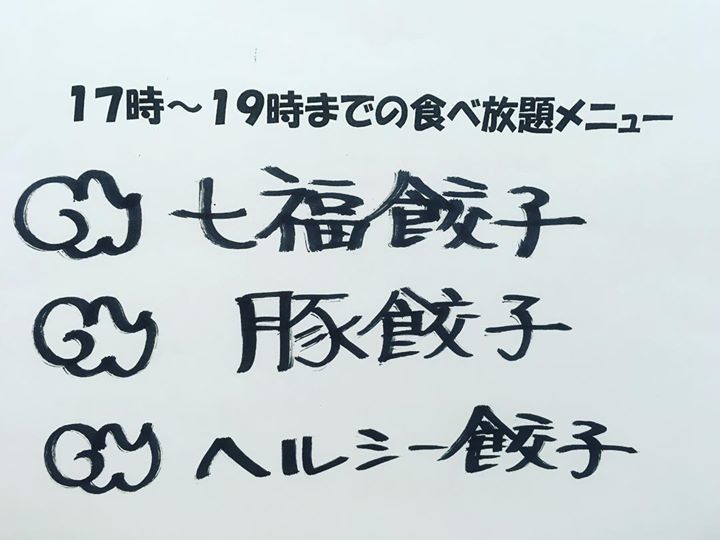 17時～19時までの食べ放題メニュー
七福餃子
豚餃子
ヘルシー餃子